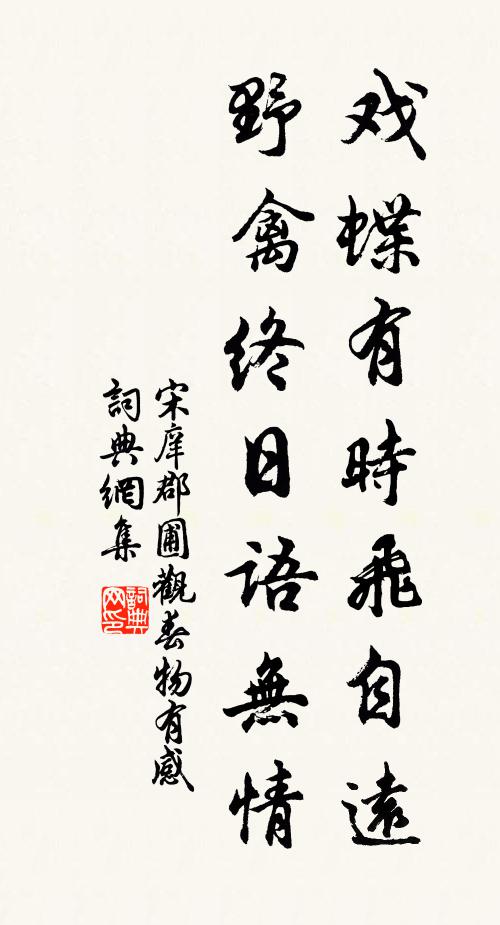 戏蝶有時飛自遠
野禽終日語無情
宋庠郡圃觀春物有感
詞典網集
詞典
网印